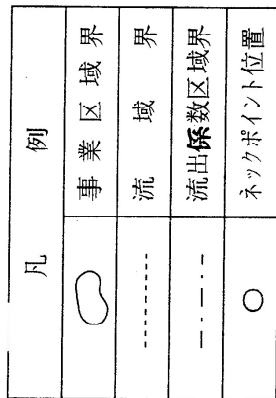 凡例
事業区域界
流域界
流出係数区域界
ネックポイント位置